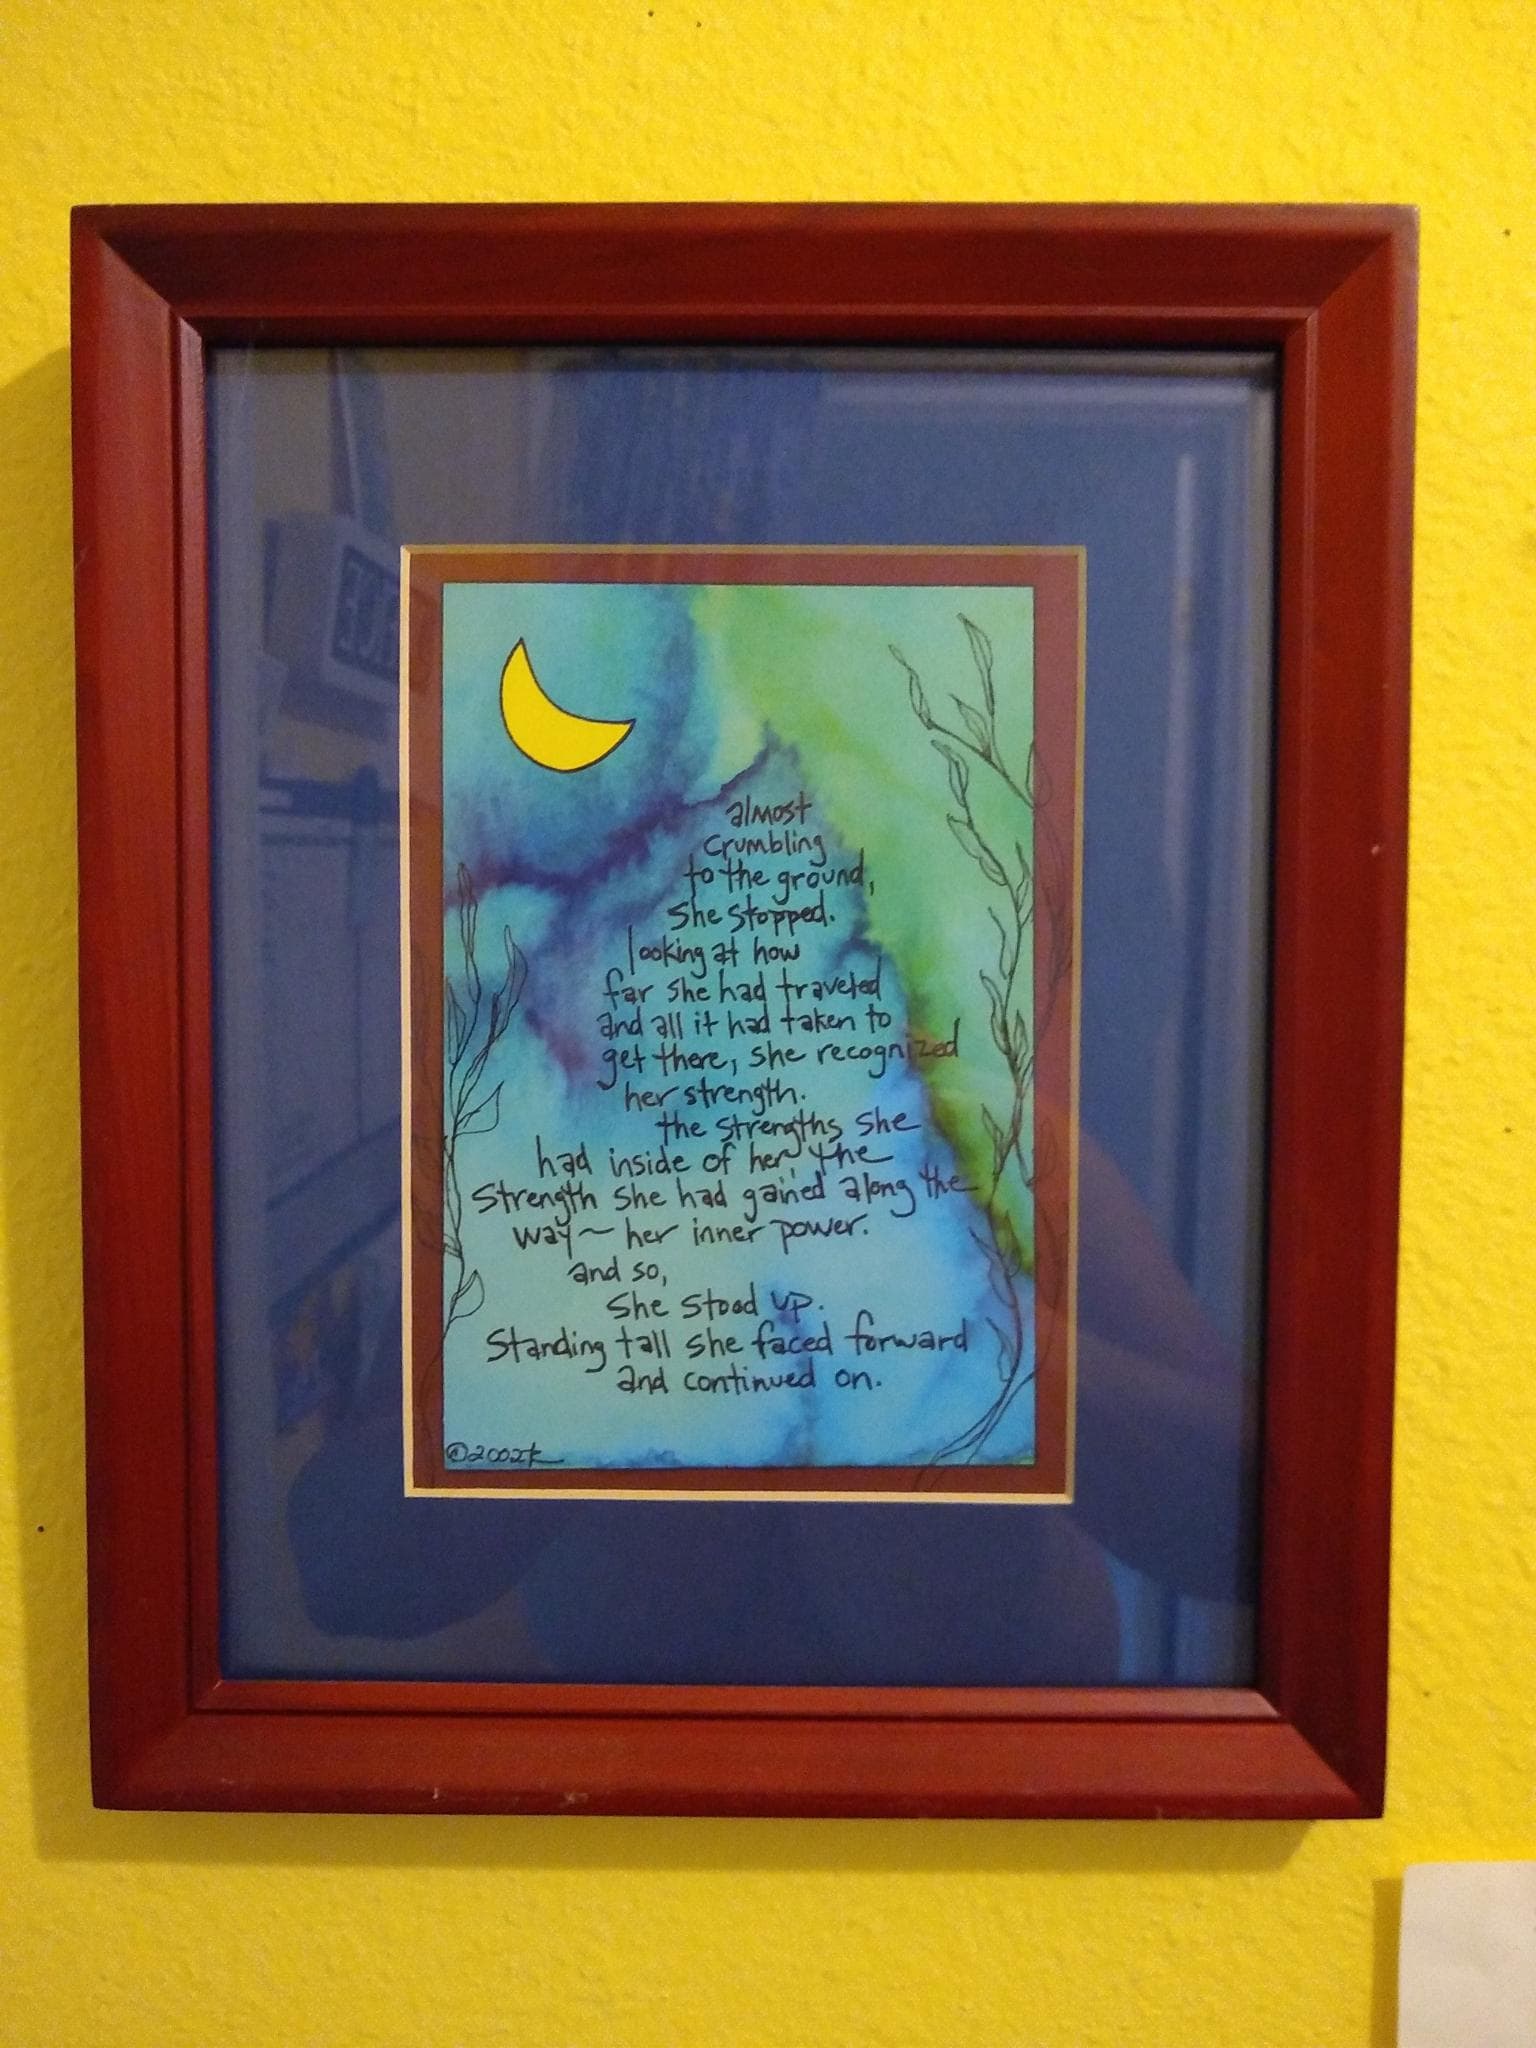 almost
crumbling
to the ground,
she stopped.
looking at how
far she had traveled
and all it had taken to
get there, she recognized
her strength.
the strengths she
had inside of her, the
strength she had gained along the
way~ her inner power.
and so,
she stood up.
Standing tall she faced forward
and continued on.
©2002